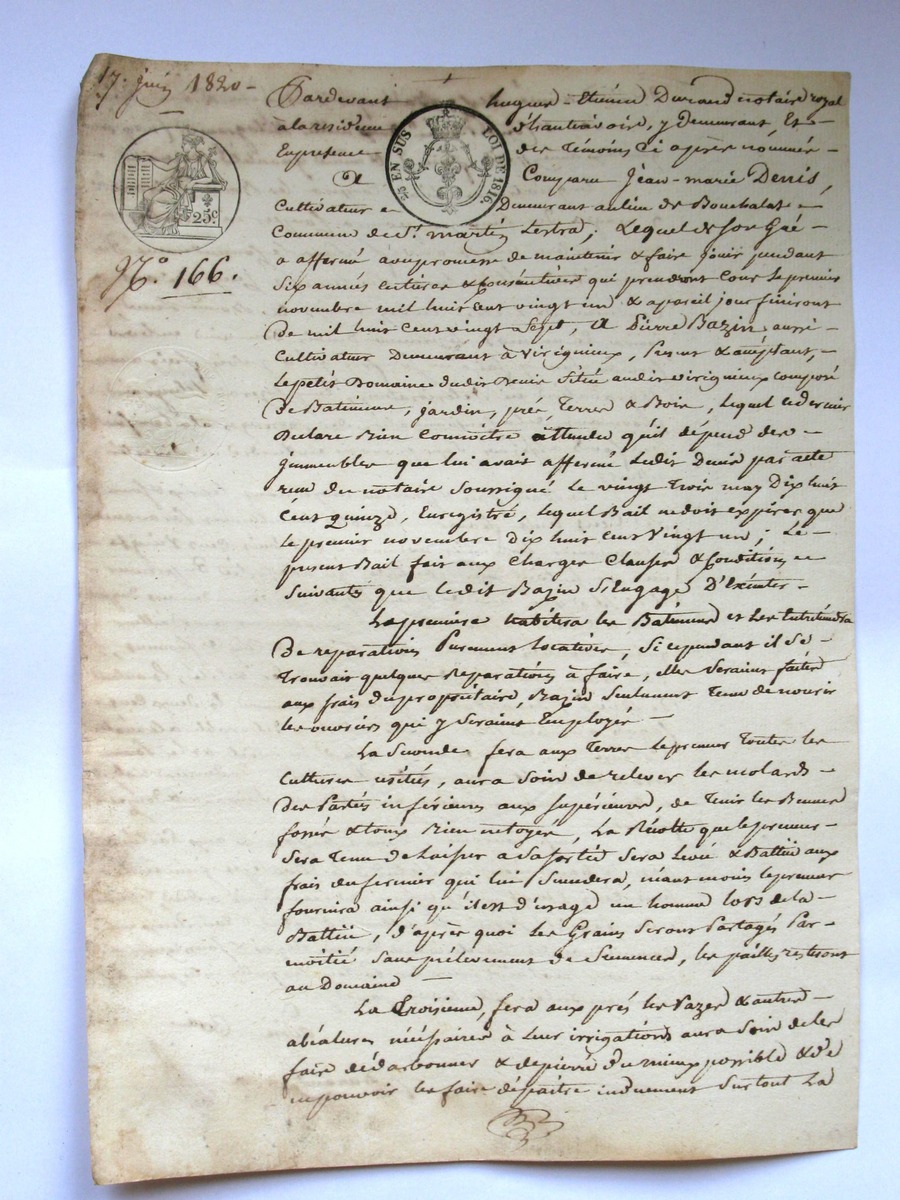 17. juin 1820 -
Pardevant hugues - Etienne Durand notaire royal
à la residence d'hauterivoire, y Demeurant Et -
En presence des Temoins Ci après nommés -
EN SUS LOI DE 1816
25c.
A Comparu Jean-marie Denis,
Cultivateur Demeurant au lieu de Bouchalat
Commune de St. martin Lestra, Lequel de Son Gré -
N.o 166.
a affermé avec promesse de maintenir & faire jouir pendant
Six années entieres & Consécutives qui prendront Cours le premier
novembre mil huit Cent vingt un & à pareil jour finiront
De mil huit Cent vingt Sept, A Pierre Bazin aussi
Cultivateur Demeurant à Virigneux, présent & acceptant, -
Le petit Domaine dudit Denis Situé audit virigneux composé
De Batiments, jardin, prés, Terres & Bois, lequel ce dernier
Declare Bien Connoitre attendu qu'il dépend des -
jmmeubles que lui avait affermé Ledit Denis par acte
reçu du notaire Soussigné le vingt Trois may Dix huit
Cent quinze, Enregistré, lequel Bail ne doit expirer que
le premier novembre dix huit cent Vingt un; Le -
présent Bail fait aux Charges Clauses & Conditions
Suivantes que ledit Bazin S'Engage D'Exécuter. -
La premiere habitera les Batiments et Les Entretiendra
De reparations Purement Locatives, Si cependant il Se -
Trouvait quelques Reparations à faire, elles Seraient faites
aux frais du propriétaire, Bazin Seulement Tenu de nourir
les ouvriers qui y Seraient Employés -
La Seconde fera aux Terres le preneur Toutes les
Cultures usitées, aura Soin de relever les molards -
Des Parties inférieures aux Supérieures, de Tenir les
fossés & Bien netoyés, La Récolte que le preneur -
Sera Tenu de Laisser à Sa Sortie Sera Levée & Battüe aux
frais du fermier qui lui Succedera, néantmoins le preneur
fournira ainsi qu'il est d'usage un homme lors de la -
Battüe, d'après quoi Les Grains Seront Partagés Par -
moitié Sans prélevement de Semences, les pailles resteront
au Domaine -
La Troisieme, fera aux prés les Razes & autres -
nécéssaires à Leur irrigations aura Soin de les
faire dédarbonner & depierré du mieux possible & de
ne pouvoir les faire depaitre induement Surtout La